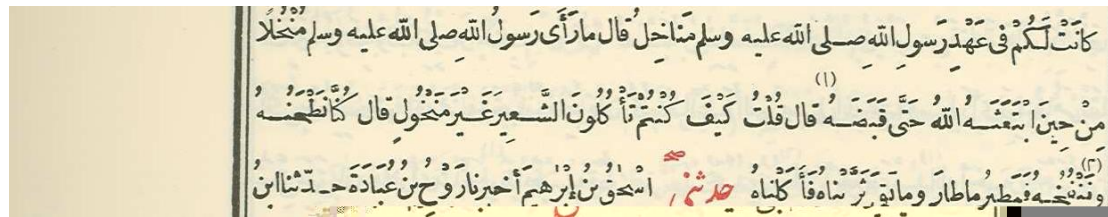 كَانَتْ لَكُمْ فِى عَهْدِ رَسُولِ اللّٰهِ صلى الله عليه وسلم مَنَاخِلُ قال مارَأَى رَسولُ اللّٰهِ صلى الله عليه وسلم مُنْخُلًا
مِنْ حِينَ ابْتَعَثَـهُ اللّٰهُ حَتَّى قَبَضَـهُ (١) قال قُلْتُ كَيْفَ كُنْتُمْ تَأْكُلُونَ الشَّـعِيرَ غَيْرَ مَنْخُولٍ قال كُنَّا نَطْحَنُـهُ
وَنَنْفُخُـهُ (٢) فَيَطِيرُ ماطارَ وما بَقِىَ ثَرَّيْناهُ فَأَكَلْناهُ حدثنى صح اسْحٰقُ بنُ إبْرٰهِيمَ أخبرنا رَوْحُ بنُ عُبَادَةَ حـدّثنا ابنُ